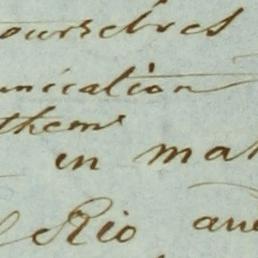 ourselves
unication
them
in mak
Rio and